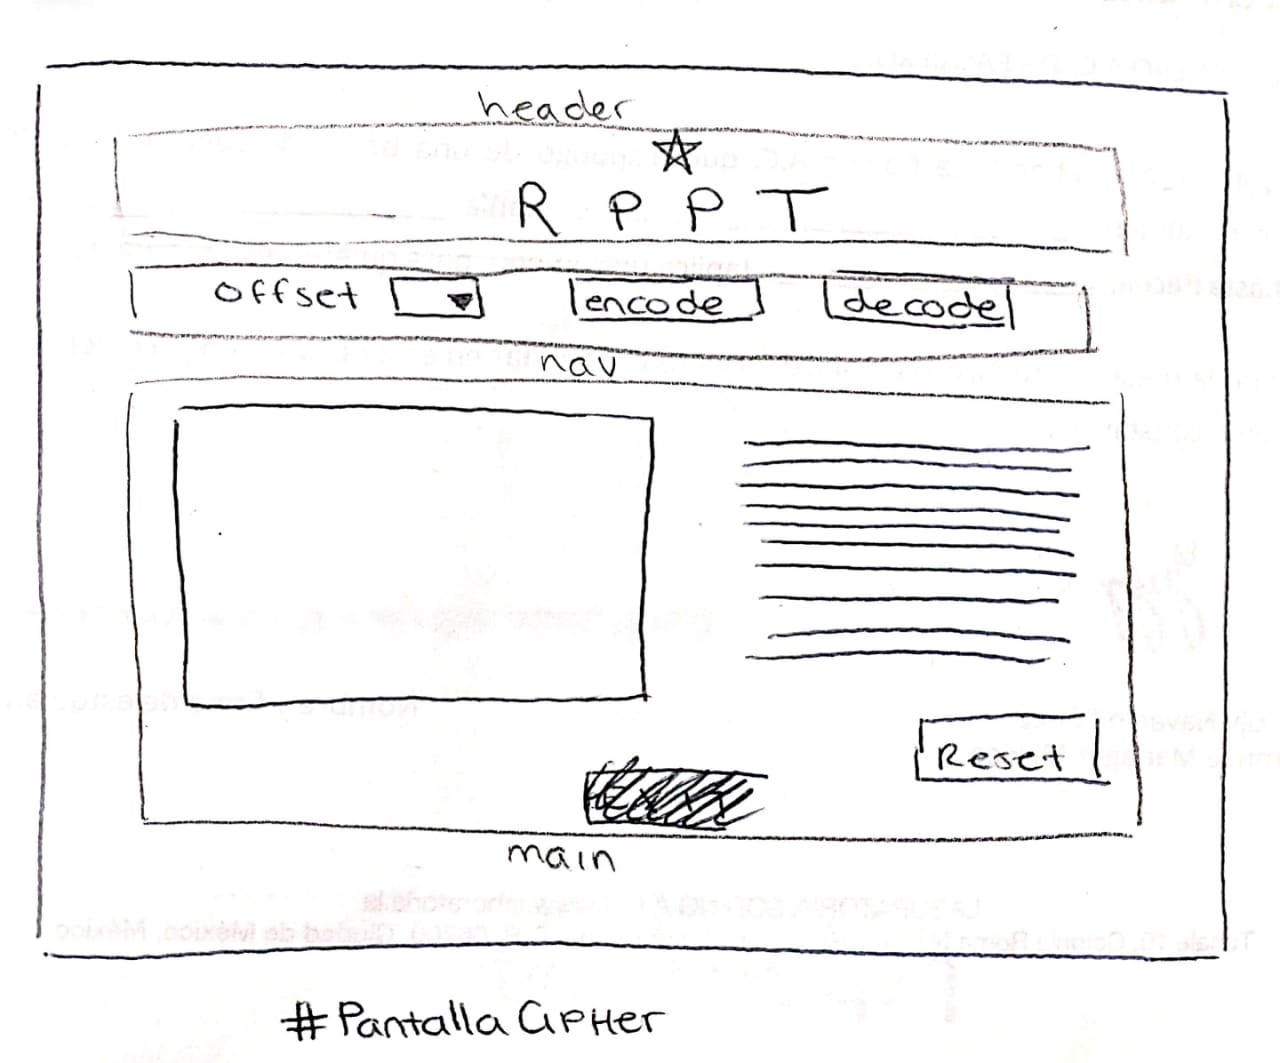 header
R P P T
offset encode decode
nav
Reset
main
#Pantalla CIPHer